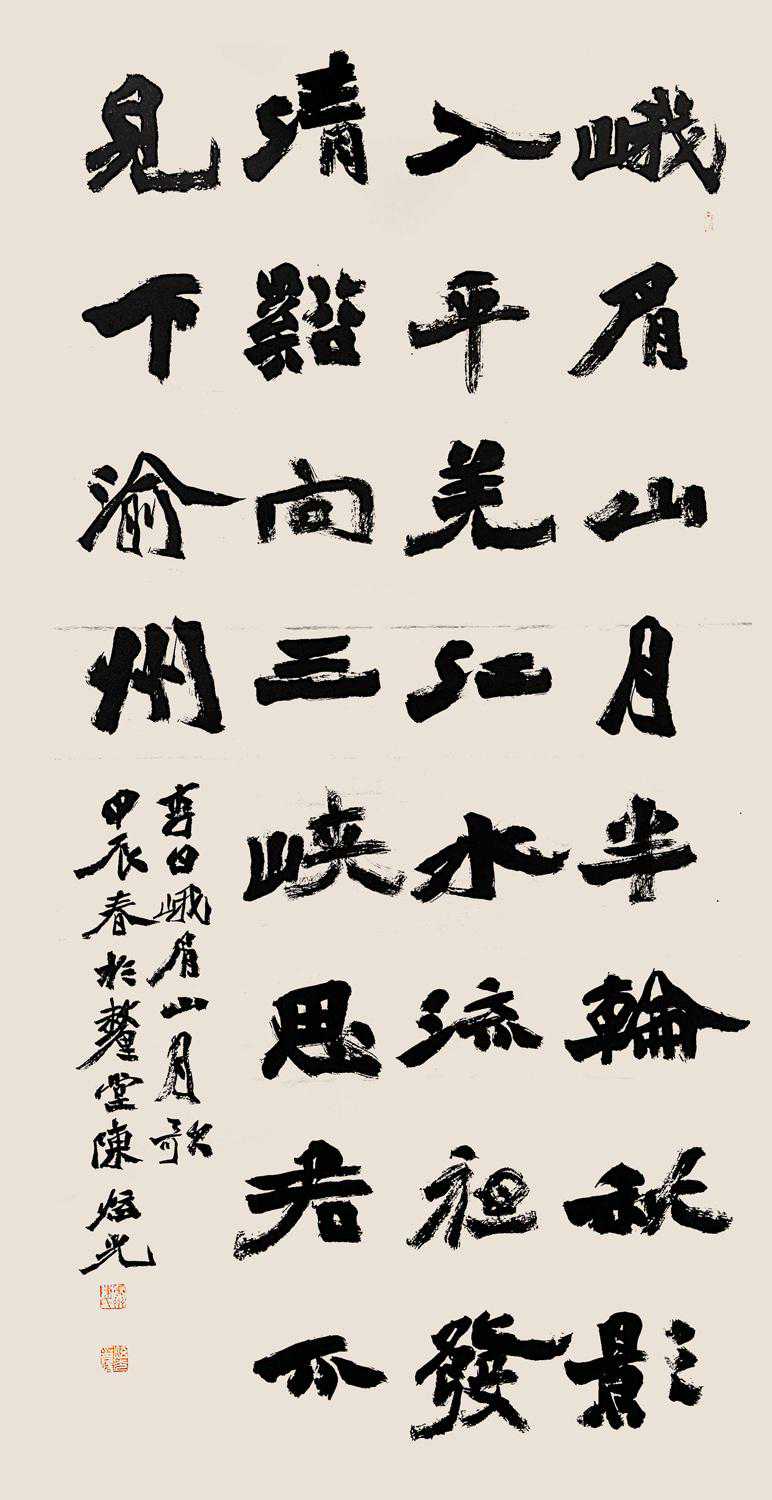 峨眉山月半輪秋影
入平羌江水流亱發
清谿向三峽思君不
見下渝州
李白峨眉山月歌
甲辰春於釐堂陳光